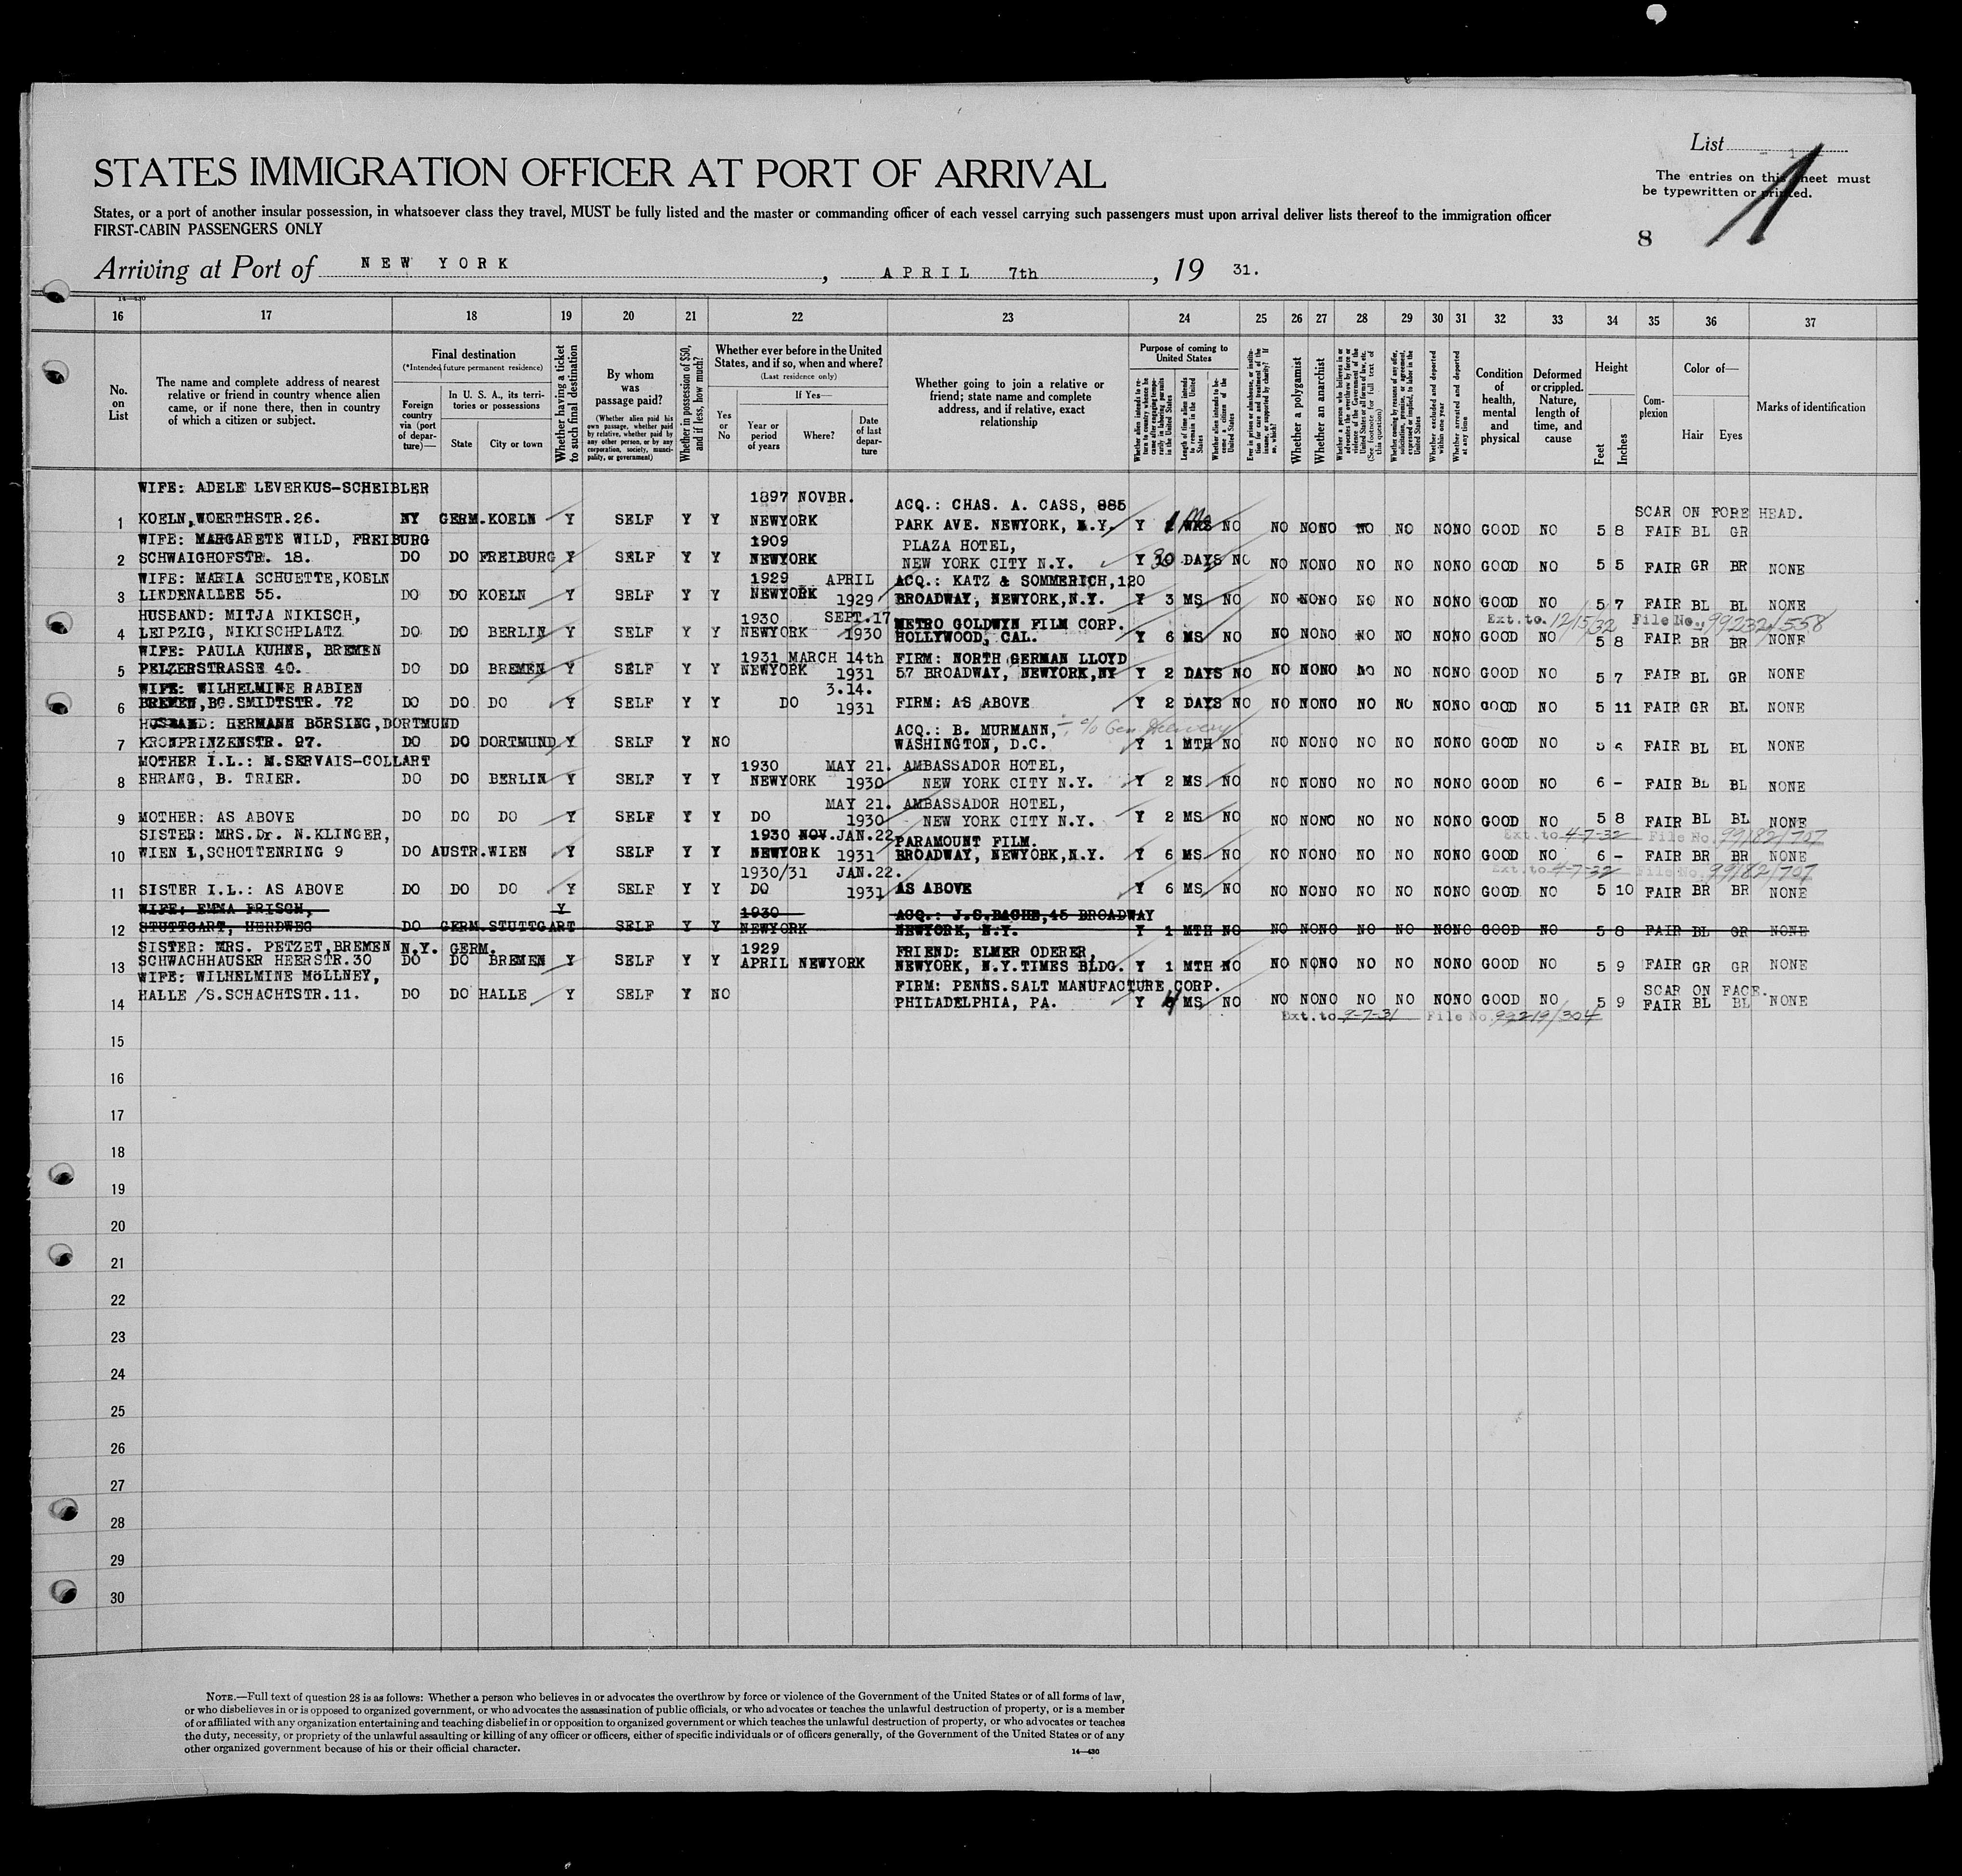 List - 1 -
1
The entries on this sheet must
be typewritten or printed.
STATES IMMIGRATION OFFICER AT PORT OF ARRIVAL
States, or a port of another insular possession, in whatsoever class they travel, MUST be fully listed and the master or commanding officer of each vessel carrying such passengers must upon arrival deliver lists thereof to the immigration officer
FIRST-CABIN PASSENGERS ONLY
8
Arriving at Port of NEW YORK, APRIL 7th, 19 31.
14-430
16 17 18 19 20 21 22 23 24 25 26 27 28 29 30 31 32 33 34 35 36 37
No. on List
The name and complete address of nearest
relative or friend in country whence alien
came, or if none there, then in country
of which a citizen or subject.
Final destination
(*Intended future permanent residence)
Foreign country via (port of departure)—
In U. S. A., its territories or possessions
State
City or town
Whether having a ticket to such final destination
By whom was passage paid?
(Whether alien paid his own passage, whether paid by relative, whether paid by any other person, or by any corporation, society, municipality, or government)
Whether in possession of $50, and if less, how much?
Whether ever before in the United States, and if so, when and where?
(Last residence only)
Yes or No
If Yes—
Year or period of years
Where?
Date of last departure
Whether going to join a relative or
friend; state name and complete
address, and if relative, exact
relationship
Purpose of coming to United States
Whether alien intends to return to country whence he came after engaging temporarily in laboring pursuits in the United States
Length of time alien intends to remain in the United States
Whether alien intends to become a citizen of the United States
Ever in prison or almshouse, or institution for care and treatment of the insane, or supported by charity? If so, which?
Whether a polygamist
Whether an anarchist
Whether a person who believes in or advocates the overthrow by force or violence of the Government of the United States or all forms of law, etc. (See footnote for full text of this question)
Whether coming by reasons of any offer, solicitation, promise, or agreement, expressed or implied, to labor in the United States
Whether excluded and deported within one year
Whether arrested and deported at any time
Condition of health, mental and physical
Deformed or crippled. Nature, length of time, and cause
Height
Feet
Inches
Complexion
Color of—
Hair
Eyes
Marks of identification
WIFE: ADELE LEVERKUS-SCHEIBLER 1897 NOVBR. ACQ.: CHAS. A. CASS, 885 SCAR ON FORE HEAD.
1 KOELN,WOERTHSTR.26. NY GERM. KOELN Y SELF Y Y NEWYORK PARK AVE. NEWYORK, N.Y. Y 1 Mo WKS NO NO NO NO NO NO NO NO GOOD NO 5 8 FAIR BL GR
WIFE: MARGARETE WILD, FREIBURG 1909 PLAZA HOTEL,
2 SCHWAIGHOFSTR. 18. DO DO FREIBURG Y SELF Y Y NEWYORK NEW YORK CITY N.Y. Y 30 DAYS NO NO NO NO NO NO NO NO GOOD NO 5 5 FAIR GR BR NONE
WIFE: MARIA SCHUETTE,KOELN 1929 APRIL ACQ.: KATZ & SOMMERICH,120
3 LINDENALLEE 55. DO DO KOELN Y SELF Y Y NEWYORK 1929 BROADWAY, NEWYORK,N.Y. Y 3 MS NO NO NO NO NO NO NO NO GOOD NO 5 7 FAIR BL BL NONE
HUSBAND: MITJA NIKISCH, 1930 SEPT.17 METRO GOLDWYN FILM CORP. Ext. to 12/15/32 File No. 99232/558
4 LEIPZIG, NIKISCHPLATZ DO DO BERLIN Y SELF Y Y NEWYORK 1930 HOLLYWOOD, CAL. Y 6 MS NO NO NO NO NO NO NO NO GOOD NO 5 8 FAIR BR BR NONE
WIFE: PAULA KUHNE, BREMEN 1931 MARCH 14th FIRM: NORTH GERMAN LLOYD
5 PELZERSTRASSE 40. DO DO BREMEN Y SELF Y Y NEWYORK 1931 57 BROADWAY, NEWYORK,NY Y 2 DAYS NO NO NO NO NO NO NO NO GOOD NO 5 7 FAIR BL GR NONE
WIFE: WILHELMINE RABIEN 3.14.
6 BREMEN,BG.SMIDTSTR. 72 DO DO DO Y SELF Y Y DO 1931 FIRM: AS ABOVE Y 2 DAYS NO NO NO NO NO NO NO NO GOOD NO 5 11 FAIR GR BL NONE
HUSBAND: HERMANN BÖRSING,DORTMUND ACQ.: B. MURMANN, c/o Gen Delivery
7 KRONPRINZENSTR. 97. DO DO DORTMUND Y SELF Y NO WASHINGTON, D.C. Y 1 MTH NO NO NO NO NO NO NO NO GOOD NO 5 6 FAIR BL BL NONE
MOTHER I.L.: M.SERVAIS-COLLART 1930 MAY 21. AMBASSADOR HOTEL,
8 EHRANG, B. TRIER. DO DO BERLIN Y SELF Y Y NEWYORK 1930 NEW YORK CITY N.Y. Y 2 MS NO NO NO NO NO NO NO NO GOOD NO 6 - FAIR BL BL NONE
MAY 21. AMBASSADOR HOTEL,
9 MOTHER: AS ABOVE DO DO DO Y SELF Y Y DO 1930 NEW YORK CITY N.Y. Y 2 MS NO NO NO NO NO NO NO NO GOOD NO 5 8 FAIR BL BL NONE
SISTER: MRS.Dr. N.KLINGER, 1930 NOV.JAN.22, PARAMOUNT FILM. Ext. to 4-7-32 File No. 99182/707
10 WIEN 1,SCHOTTENRING 9 DO AUSTR.WIEN Y SELF Y Y NEWYORK 1931 BROADWAY, NEWYORK,N.Y. Y 6 MS NO NO NO NO NO NO NO NO GOOD NO 6 - FAIR BR BR NONE
1930/31 JAN.22. Ext. to 4-7-32 File No. 99182/707
11 SISTER I.L.: AS ABOVE DO DO DO Y SELF Y Y DO 1931 AS ABOVE Y 6 MS NO NO NO NO NO NO NO NO GOOD NO 5 10 FAIR BR BR NONE
WIFE: EMMA FRISCH, Y 1930 ACQ.: J.S.BACHE,45 BROADWAY
12 STUTTGART, HERDWEG DO GERM.STUTTGART SELF Y Y NEWYORK NEWYORK, N.Y. Y 1 MTH NO NO NO NO NO NO NO NO GOOD NO 5 8 FAIR BL GR NONE
SISTER: MRS. PETZET,BREMEN N.Y. GERM. 1929 FRIEND: ELMER ODERER,
13 SCHWACHHAUSER HEERSTR.30 DO DO BREMEN Y SELF Y Y APRIL NEWYORK NEWYORK, N.Y.TIMES BLDG. Y 1 MTH NO NO NO NO NO NO NO NO GOOD NO 5 9 FAIR GR GR NONE
WIFE: WILHELMINE MÖLLNEY, FIRM: PENNS.SALT MANUFACTURE CORP. SCAR ON FACE.
14 HALLE /S.SCHACHTSTR.11. DO DO HALLE Y SELF Y NO PHILADELPHIA, PA. Y 4 MS NO NO NO NO NO NO NO NO GOOD NO 5 9 FAIR BL BL NONE
Ext. to 9-7-31 File No. 99219/304
15
16
17
18
19
20
21
22
23
24
25
26
27
28
29
30
NOTE.—Full text of question 28 is as follows: Whether a person who believes in or advocates the overthrow by force or violence of the Government of the United States or of all forms of law,
or who disbelieves in or is opposed to organized government, or who advocates the assassination of public officials, or who advocates or teaches the unlawful destruction of property, or is a member
of or affiliated with any organization entertaining and teaching disbelief in or opposition to organized government or which teaches the unlawful destruction of property, or who advocates or teaches
the duty, necessity, or propriety of the unlawful assaulting or killing of any officer or officers, either of specific individuals or of officers generally, of the Government of the United States or of any
other organized government because of his or their official character.
14-430